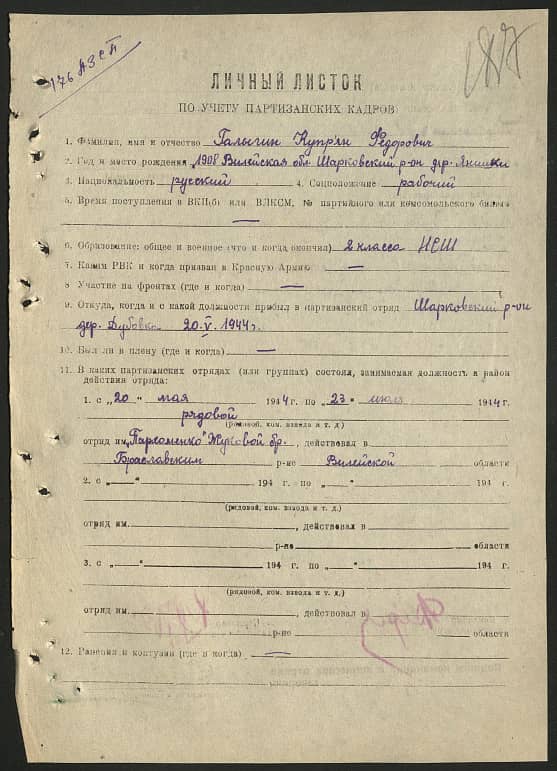 176 АЗСП
ЛИЧНЫЙ ЛИСТОК
ПО УЧЕТУ ПАРТИЗАНСКИХ КАДРОВ
1. Фамилия, имя и отчество Галыгин Купр'ян Федорович
2. Год и место рождения 1908 Вилейская обл Шарковский р-он дер. Янишки
3. Национальность русский 4. Соцположение рабочий
5. Время поступления в ВКП(б) или ВЛКСМ, № партийного или комсомольского билета
—
6. Образование: общее и военное (что и когда окончил) 2 класса НСШ
7. Каким РВК и когда призван в Красную Армию —
8. Участие на фронтах (где и когда) —
9. Откуда, когда и с какой должности прибыл в партизанский отряд Шарковский р-он
дер. Дубовка 20-V 1944 г.
10. Был ли в плену (где и когда) —
11. В каких партизанских отрядах (или группах) состоял, занимаемая должность и район
действия отряда:
1. с „20“ мая 1944 г. по „23“ июля 1944 г.
рядовой
(рядовой, ком. взвода и т. д.)
отряд им. „Пархоменко“ Жуковой бр., действовал в
Браславским р-не Вилейской области
2. с „ “ 194 г. по „ “ 194 г.
(рядовой, ком. взвода и т. д.)
отряд им. , действовал в
р-не области
3. с „ “ 194 г. по „ “ 194 г.
(рядовой, ком. взвода и т. д.)
отряд им. , действовал в
р-не области
12. Ранения и контузии (где и когда) —